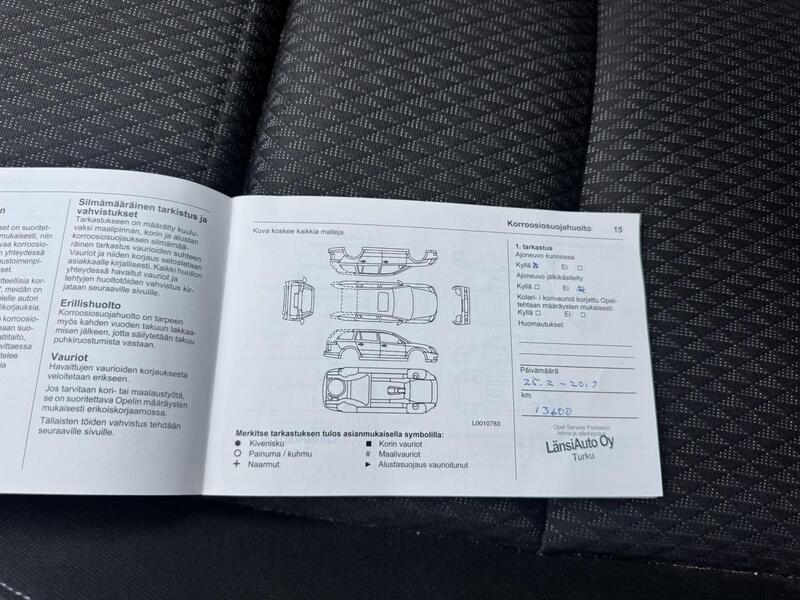 en
set on suoritet-
mukaisesti, niin
vaa korroosio-
n yhteydessä
ustoimenpi-
kset.
, meidän on
olelle auton
ikorjauksia.
korroosio-
aan suo-
attitaito,
vittaessa
telee
iä
Silmämääräinen tarkistus ja
vahvistukset
Tarkastukseen on määrätty kuulu-
vaksi maalipinnan, korin ja alustan
korroosiosuojauksen silmämää-
räinen tarkastus vaurioiden suhteen.
Vauriot ja niiden korjaus selostetaan
asiakkaalle kirjallisesti. Kaikki huollon
yhteydessä havaitut vauriot ja
tehtyjen huoltotöiden vahvistus kir-
jataan seuraaville sivuille.
Erillishuolto
Korroosiosuojahuolto on tarpeen
myös kahden vuoden takuun lakkaa-
misen jälkeen, jotta säilytetään takuu
puhkiruostumista vastaan.
Vauriot
Havaittujen vaurioiden korjauksesta
veloitetaan erikseen.
Jos tarvitaan kori- tai maalaustyötä,
se on suoritettava Opelin määräysten
mukaisesti erikoiskorjaamossa.
Tällaisten töiden vahvistus tehdään
seuraaville sivuille.
Korroosiosuojahuolto 15
Kuva koskee kaikkia malleja.
L0010783
Merkitse tarkastuksen tulos asianmukaisella symbolilla:
Kivenisku
Painuma / kuhmu
+ Naarmut
Korin vauriot
# Maalivauriot
Alustasuojaus vaurioitunut
1. tarkastus
Ajoneuvo kunnossa
Kyllä Ei
Ajoneuvo jälkikäsitelty
Kyllä Ei
Kolari- / korivauriot korjattu Opel-
tehtaan määräysten mukaisesti
Kyllä Ei
Huomautukset
Päivämäärä
25.2 - 2019
km
13600
Opel Service Partnerin
LänsiAuto Oy
Turku